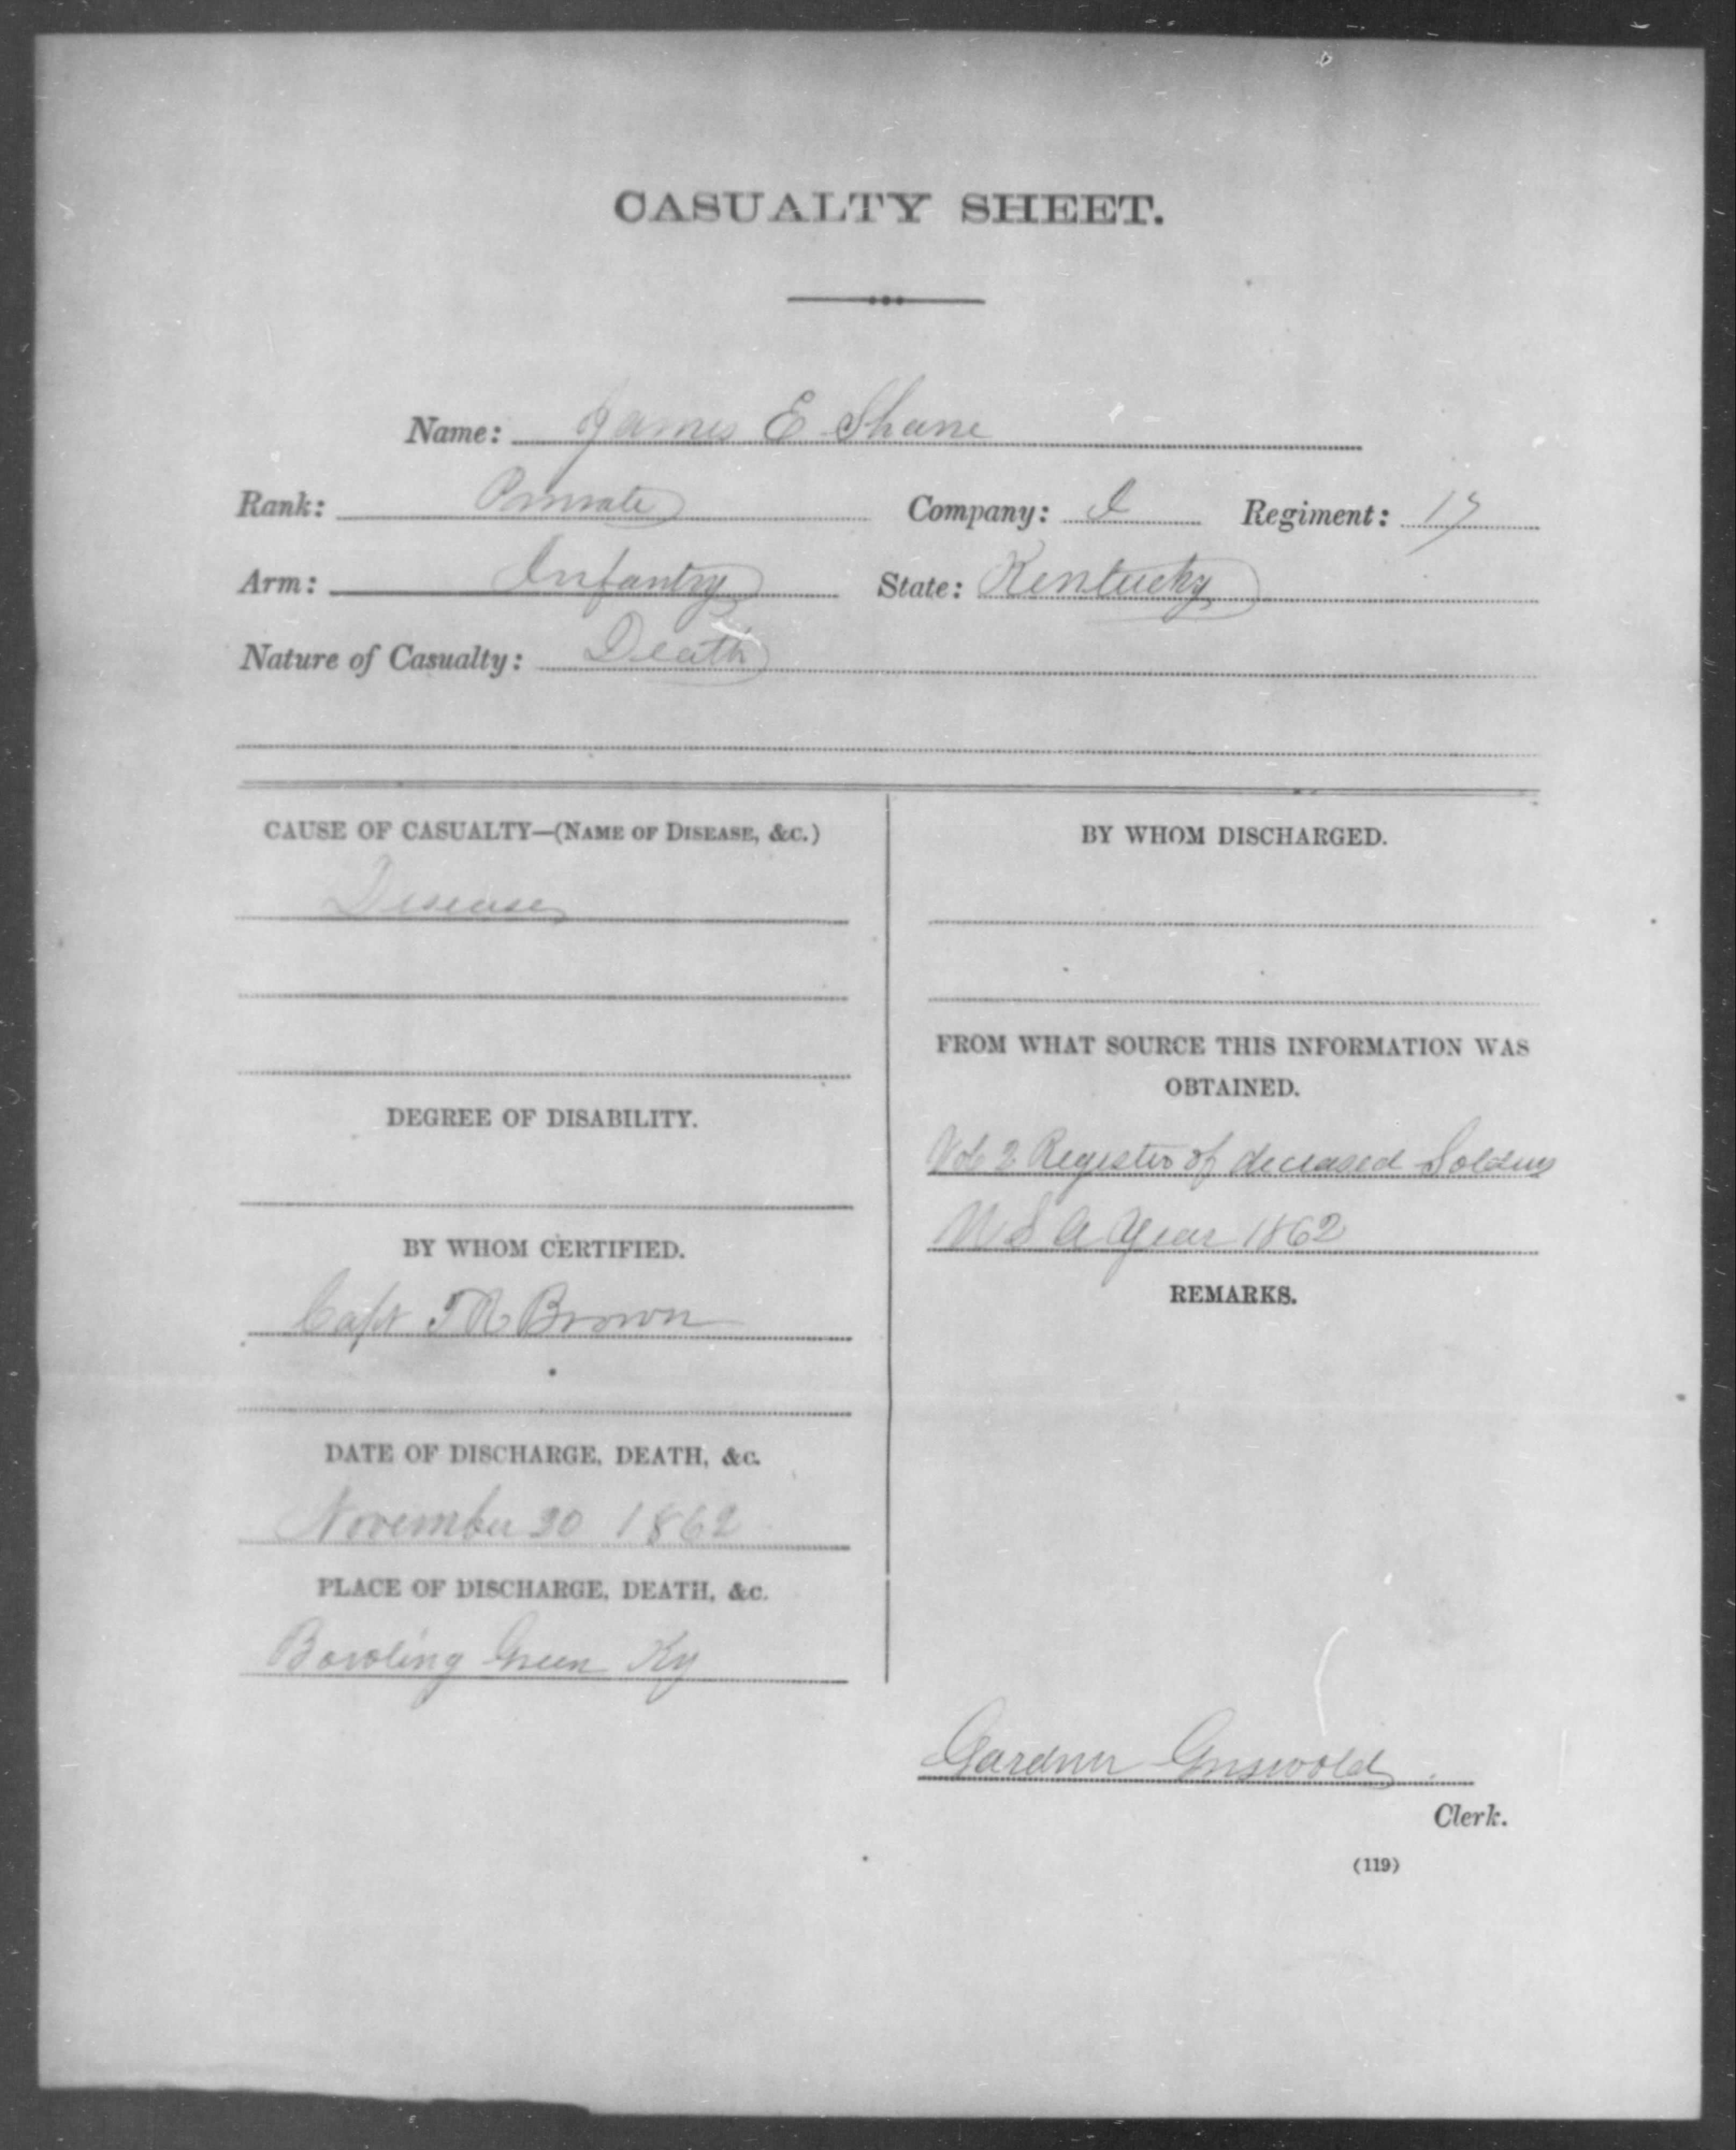 CASUALTY SHEET.
Name: James E Shane
Rank: Private Company: I Regiment: 17
Arm: Infantry State: Kentucky
Nature of Casualty: Death
CAUSE OF CASUALTY—(NAME OF DISEASE, &C.)
Disease
DEGREE OF DISABILITY.
BY WHOM CERTIFIED.
Capt T R Brown
DATE OF DISCHARGE, DEATH, &C.
November 30 1862
PLACE OF DISCHARGE, DEATH, &C.
Bowling Green Ky
BY WHOM DISCHARGED.
FROM WHAT SOURCE THIS INFORMATION WAS
OBTAINED.
Vol 2 Register of deceased Soldiers
U S A Year 1862
REMARKS.
Gardner Griswold
Clerk.
(119)